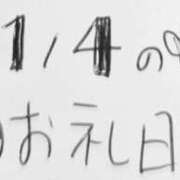 1/4の
お礼日